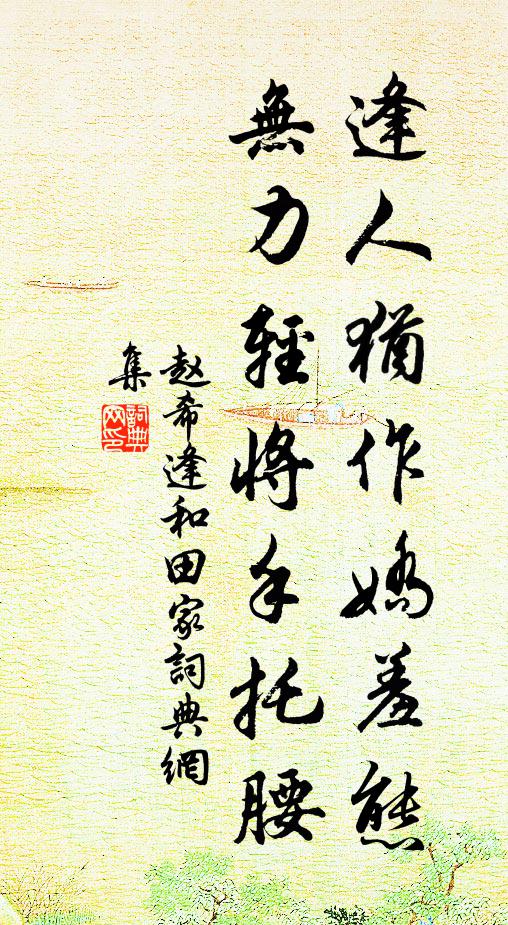 逢人猶作嬌羞態
無力輕將手托腰
赵希逢和田家詞典網
集
詞典
网印